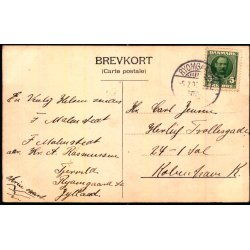 BREVKORT
(Carte postale)
RYOMGAARD
DANMARK
5
En Venlig Hilsen sendes
F Malmstedt
F Malmstedt
adr. Hr. A Rasmussen
Ryomgaard St
Jylland
Hr. Carl Jensen
Herluf Trollesgade
24 - 1 Sal
København K.